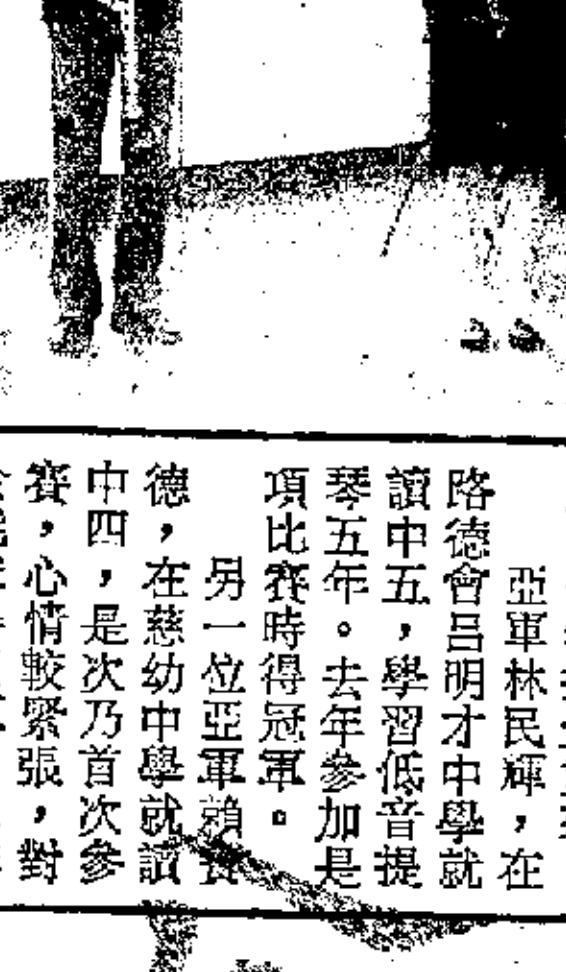 亞軍林民輝，在
路德會呂明才中學就
讀中五，學習低音提
琴五年。去年參加是
項比賽時得冠軍。
另一位亞軍賴
德，在慈幼中學就讀
中四，是次乃首次參
賽，心情較緊張，對